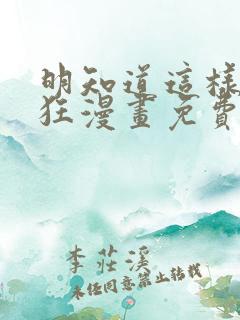 明知道這樣
狂漫畫免費
李莊溪
未经同意禁止转载